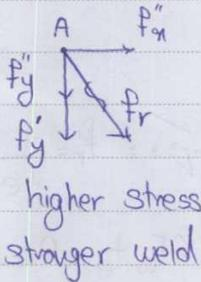 A f''x
f''y
f'y fr
higher stress
stronger weld